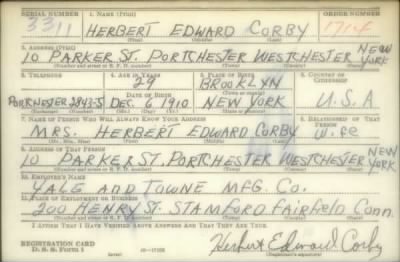 SERIAL NUMBER 1. NAME (Print) ORDER NUMBER
3311 HERBERT EDWARD CORBY 1714
2. ADDRESS (Print)
10 PARKER ST. PORTCHESTER WESTCHESTER NEW YORK
(Number and street or R. F. D. number) (Town) (County) (State)
3. TELEPHONE 4. AGE IN YEARS 5. PLACE OF BIRTH 6. COUNTRY OF CITIZENSHIP
29 BROOKLYN
DATE OF BIRTH
PORTCHESTER 2843-J DEC. 6 1910 NEW YORK U.S.A
(Exchange) (Number) (Mo.) (Day) (Yr.) (State or country)
7. NAME OF PERSON WHO WILL ALWAYS KNOW YOUR ADDRESS 8. RELATIONSHIP OF THAT PERSON
MRS. HERBERT EDWARD CORBY wife
(Mr., Mrs., Miss) (First) (Middle) (Last)
9. ADDRESS OF THAT PERSON
10 PARKER ST. PORTCHESTER WESTCHESTER NEW YORK
(Number and street or R. F. D. number) (Town) (County) (State)
10. EMPLOYER'S NAME
YALE AND TOWNE MFG. CO.
11. PLACE OF EMPLOYMENT OR BUSINESS
200 HENRY ST. STAMFORD FAIRFIELD Conn.
(Number and street or R. F. D. number) (Town) (County) (State)
I AFFIRM THAT I HAVE VERIFIED ABOVE ANSWERS AND THAT THEY ARE TRUE.
REGISTRATION CARD
D. S. S. Form 1 Herbert Edward Corby
(Registrant's signature)